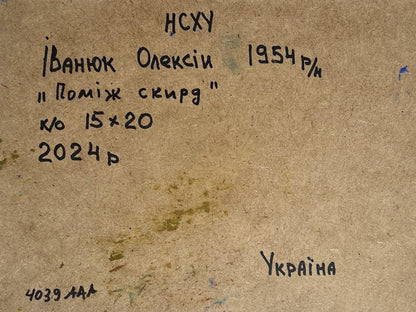 НСХУ
Іванюк Олексій 1954 р/н
„Поміж скирд"
к/о 15×20
2024р
Україна
4039 ААА